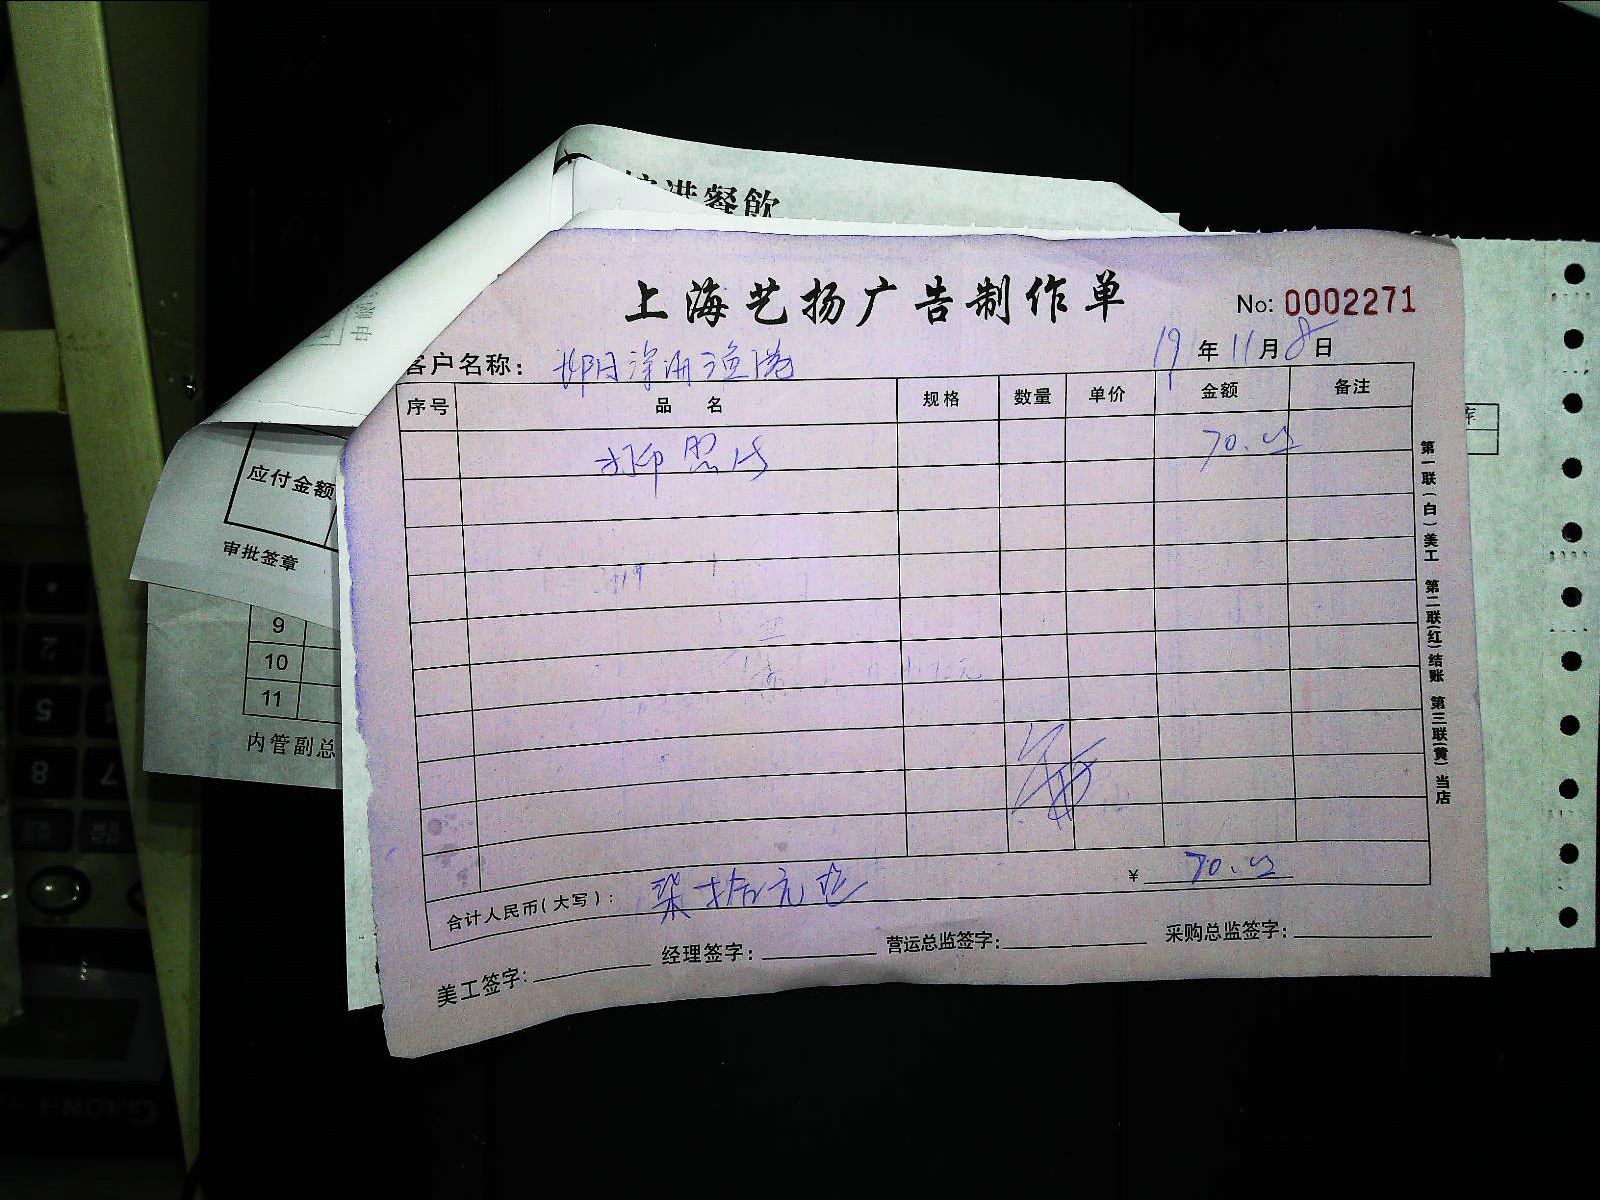 港餐飲
上海艺扬广告制作单
No: 0002271
19年11月8日
客户名称：柳阳深海渔港
序号 品名 规格 数量 单价 金额 备注
70.00
合计人民币(大写)：柒拾元正 ¥ 70.00
美工签字: 经理签字: 营运总监签字: 采购总监签字:
第一联(白)美工 第二联(红)结账 第三联(黄)当店
应付金额
审批签章
9
10
11
内管副总
库
2
5
8
7